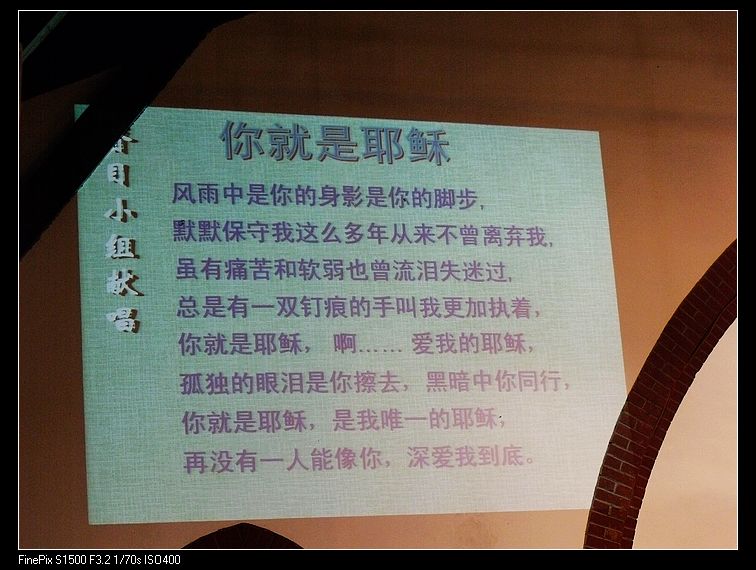 你就是耶稣
风雨中是你的身影是你的脚步,
默默保守我这么多年从来不曾离弃我,
虽有痛苦和软弱也曾流泪失迷过,
总是有一双钉痕的手叫我更加执着,
你就是耶稣, 啊…… 爱我的耶稣,
孤独的眼泪是你擦去, 黑暗中你同行,
你就是耶稣, 是我唯一的耶稣;
再没有一人能像你, 深爱我到底。
小组献唱
FinePix S1500 F3.2 1/70s ISO400